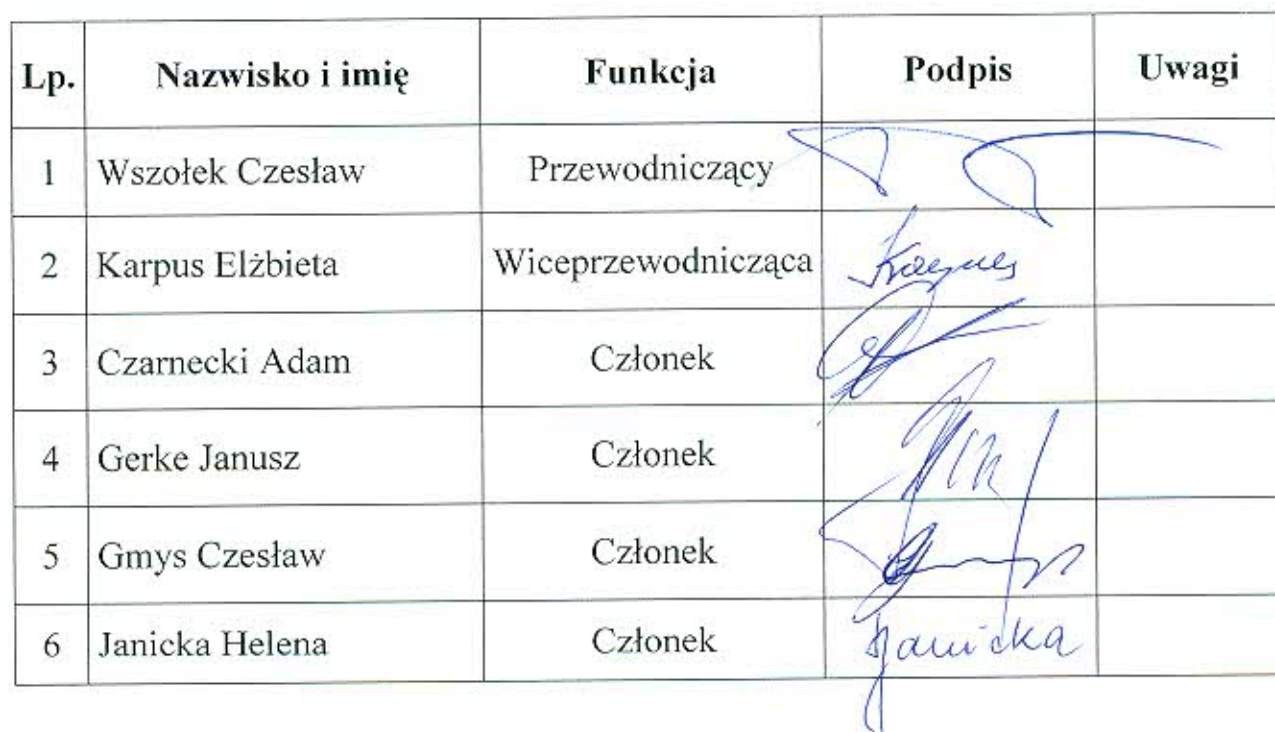 Lp. Nazwisko i imię Funkcja Podpis Uwagi
1 Wszołek Czesław Przewodniczący
2 Karpus Elżbieta Wiceprzewodnicząca Karpus
3 Czarnecki Adam Członek
4 Gerke Janusz Członek
5 Gmys Czesław Członek
6 Janicka Helena Członek Janicka